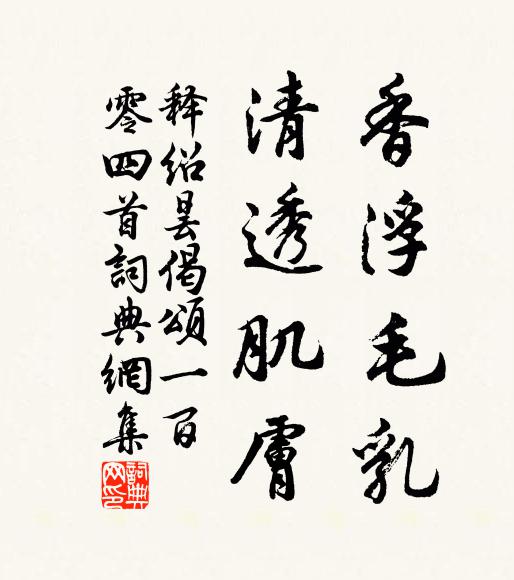 香浮毛乳
清透肌膚
釋紹曇偈頌一百
零四首詞典網集
詞典網印